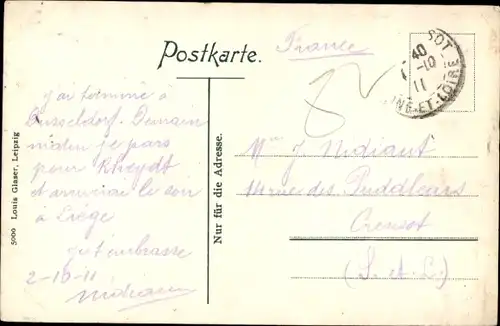 Postkarte.
France
SOT
40
-10
11
ET-LOIRE
j'ai terminé à
Düsseldorf. Demain
midi je pars
pour Rheydt
et arriverai le soir
à Liége
je t'embrasse
2-10-11
Nur für die Adresse.
5000 Louis Glaser, Leipzig
Mme J Midiaut
rue des Puddleurs
Creusot
(S. et L.)